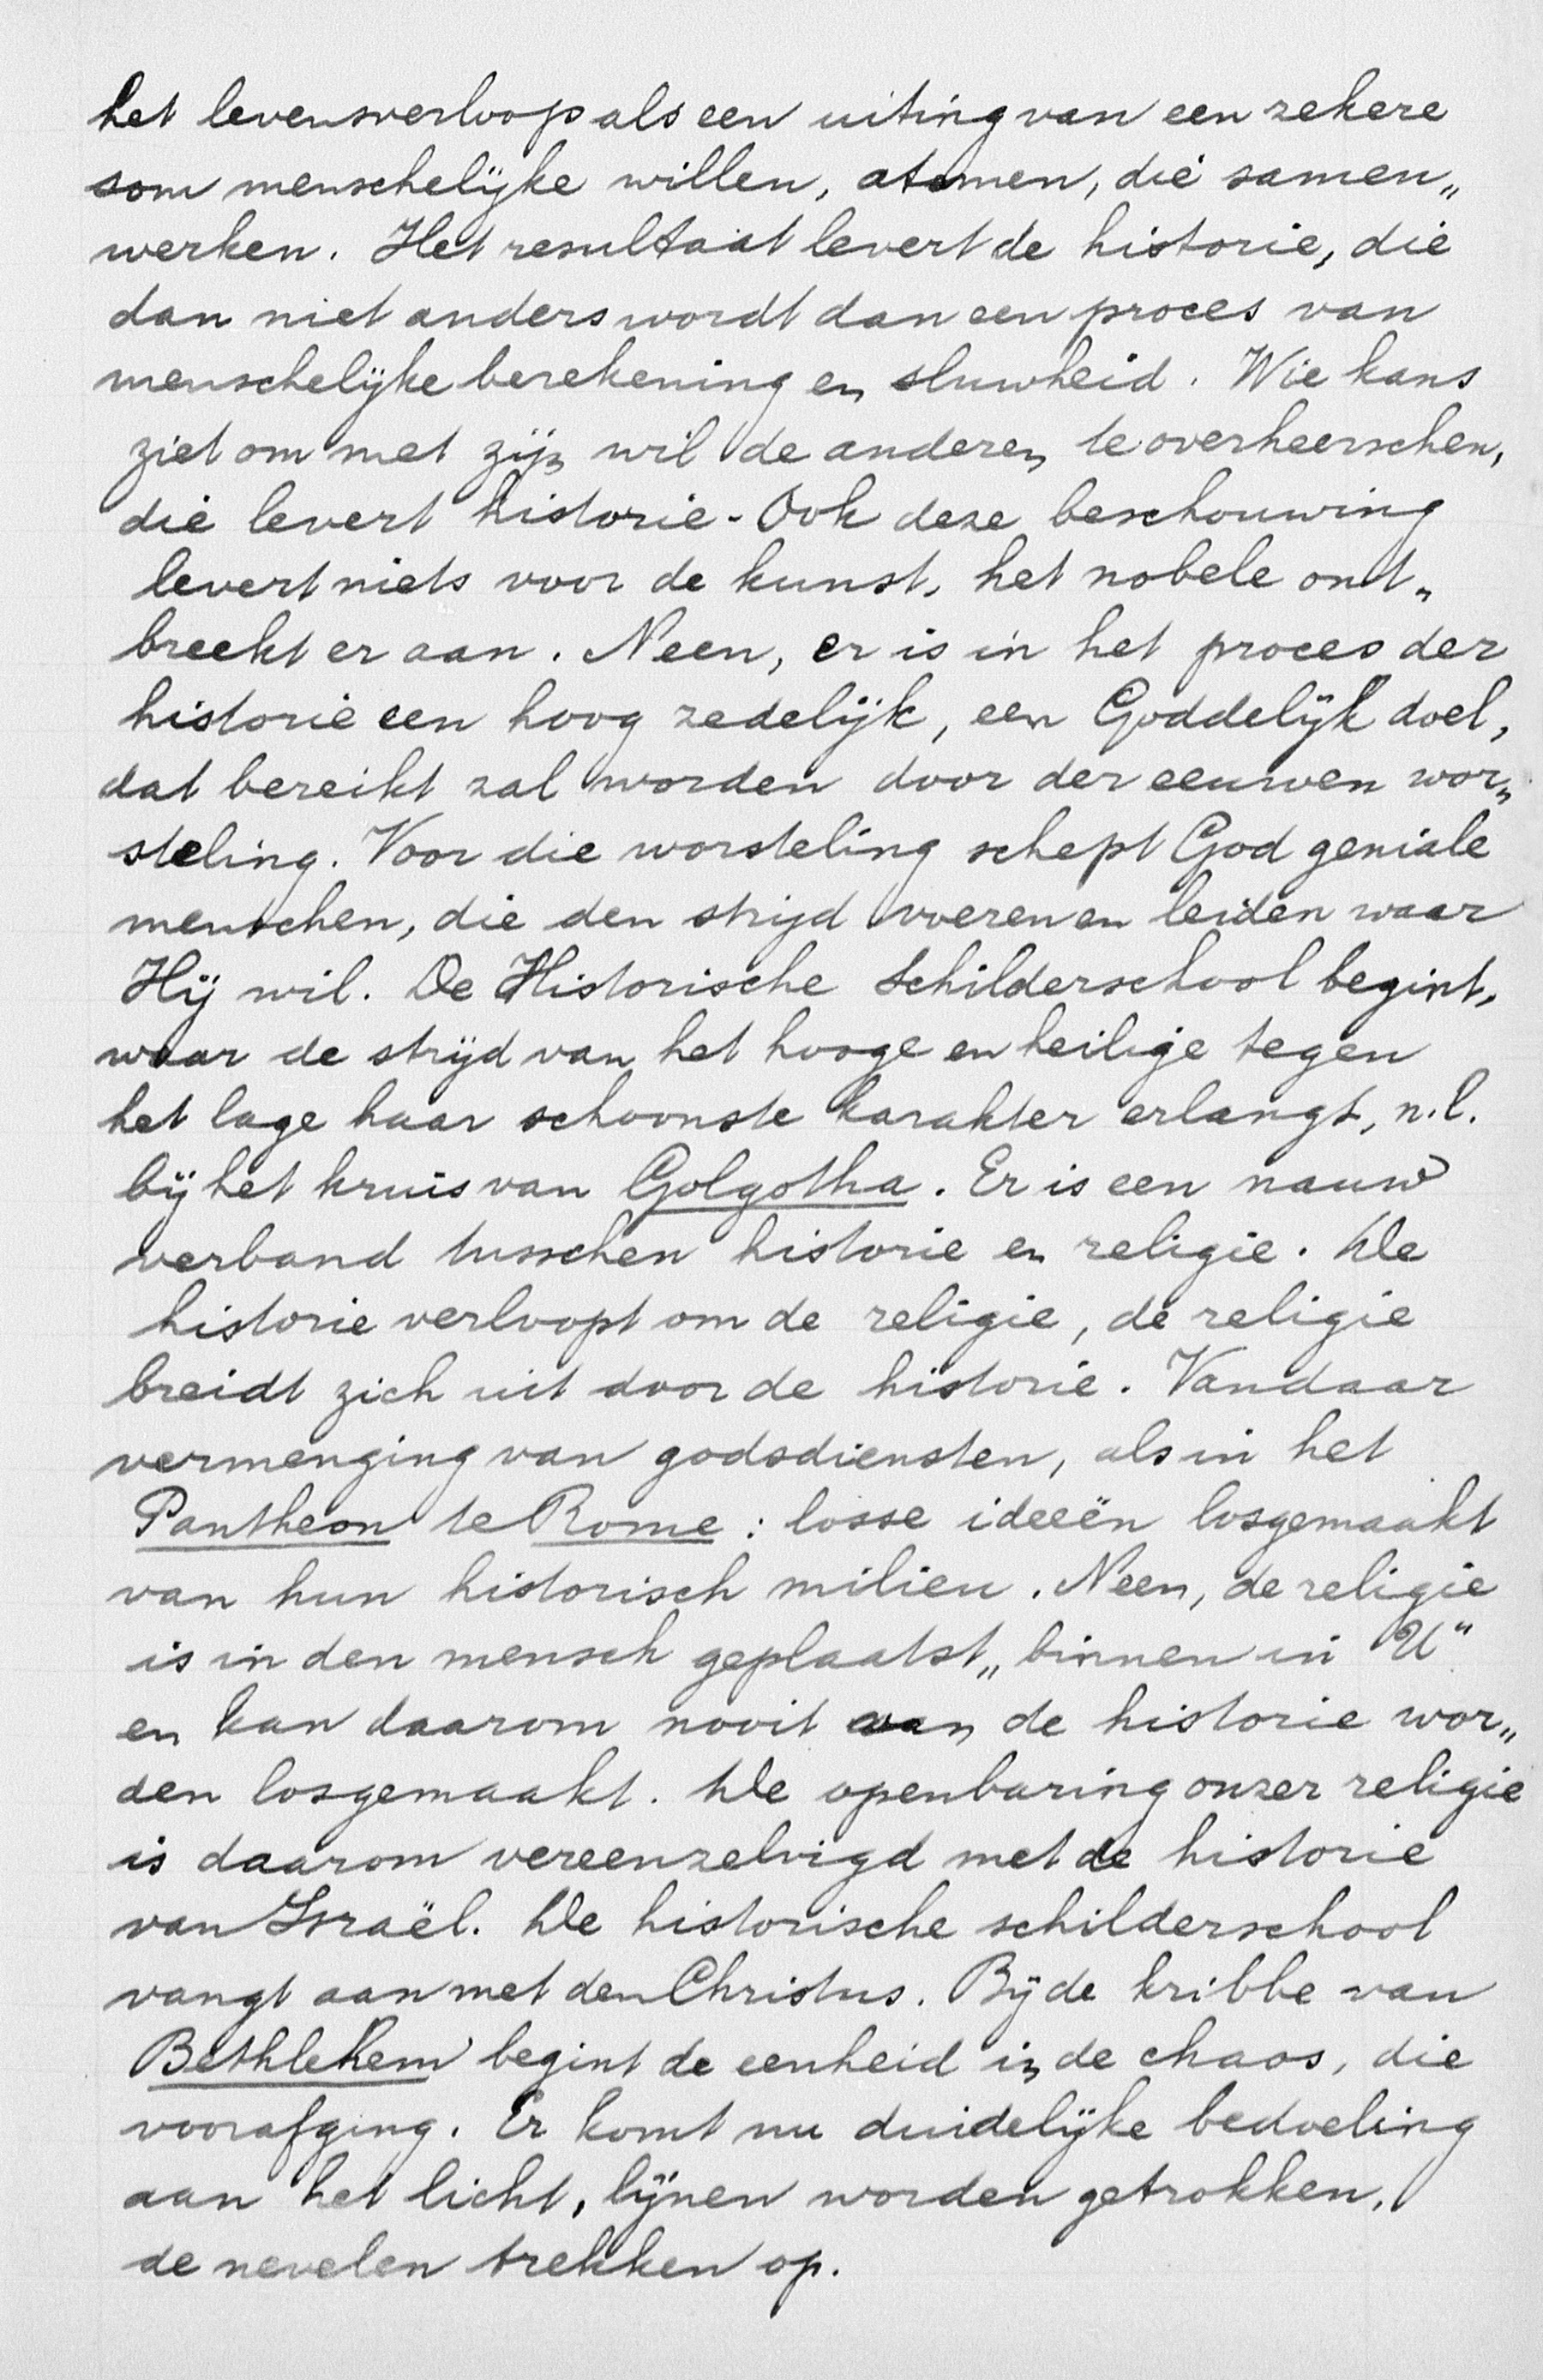 het levensverloop als een uiting van een zekere
som menschelijke willen, atomen, die samen„
werken. Het resultaat levert de historie, die
dan niet anders wordt dan een proces van
menschelijke berekening en sluwheid. Wie kans
ziet om met zijn wil de anderen te overheerschen,
die levert historie. Ook deze beschouwing
levert niets voor de kunst, het nobele ont„
breekt er aan. Neen, er is in het proces der
historie een hoog zedelijk, een Goddelijk doel,
dat bereikt zal worden door der eeuwen wor„
steling. Voor die worsteling schept God geniale
menschen, die den strijd voeren en leiden waar
Hij wil. De Historische Schilderschool begint,
waar de strijd van het hooge en heilige tegen
het lage haar schoonste karakter erlangt, n.l.
bij het kruis van Golgotha. Er is een nauw
verband tusschen historie en religie. De
historie verloopt om de religie, de religie
breidt zich uit door de historie. Vandaar
vermenging van godsdiensten, als in het
Pantheon te Rome: losse ideeën losgemaakt
van hun historisch milieu. Neen, de religie
is in den mensch geplaatst „binnen in U"
en kan daarom nooit van de historie wor„
den losgemaakt. De openbaring onzer religie
is daarom vereenzelvigd met de historie
van Israël. De historische schilderschool
vangt aan met den Christus. Bij de kribbe van
Bethlehem begint de eenheid in de chaos, die
voorafging. Er komt nu duidelijke bedoeling
aan het licht, lijnen worden getrokken,
de nevelen trekken op.